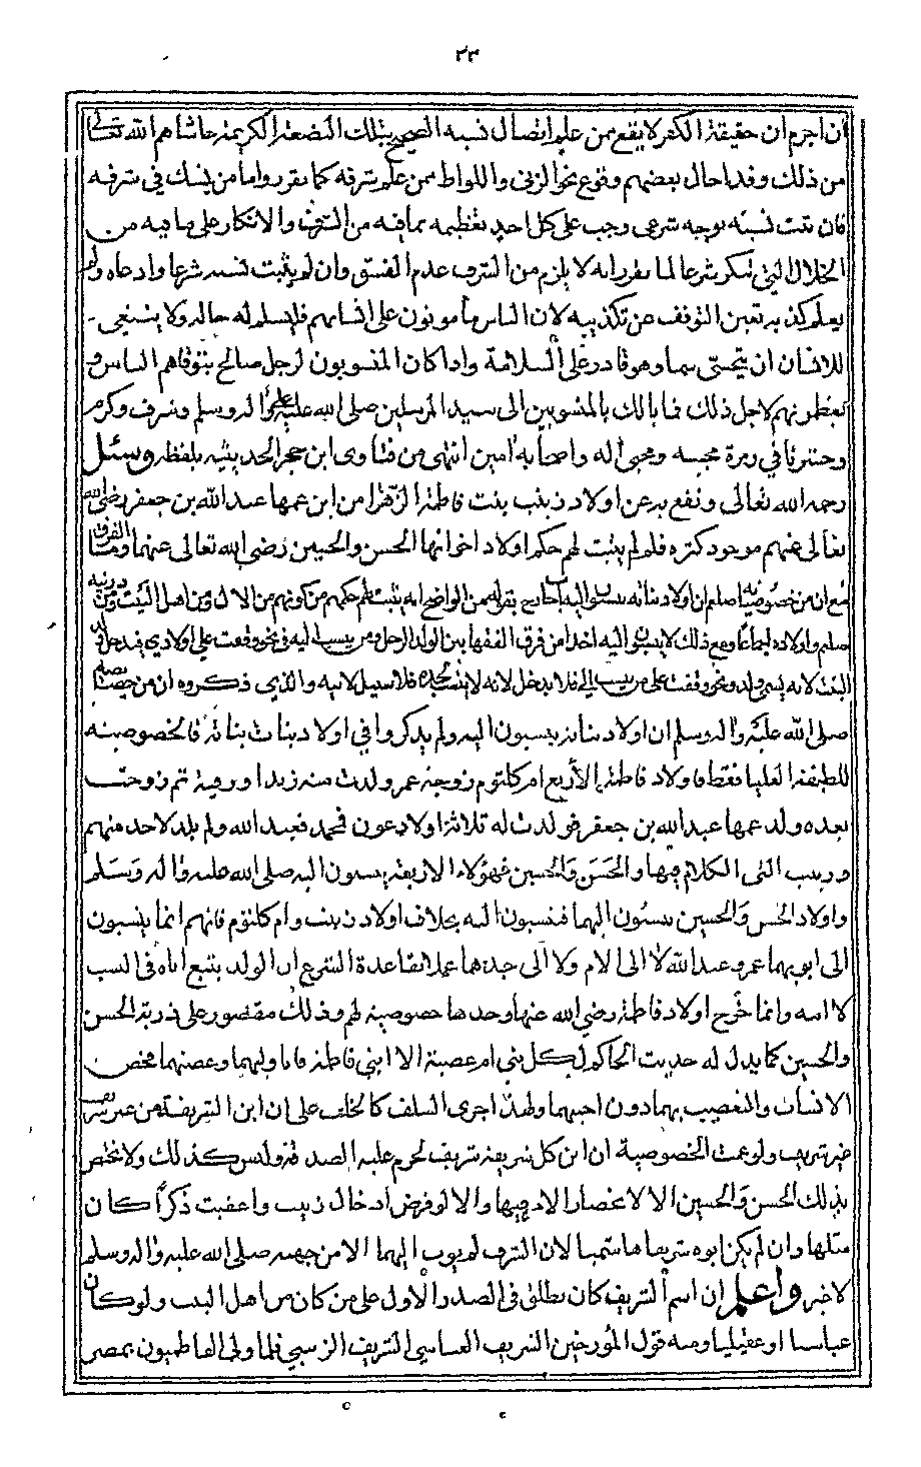 ٢٣
ان اجزم ان حقيقة الكفر لا يقع ممن علم اتصال نسبه الصحيح بتلك البضعة الكريمة حاشاهم الله تعالى
من ذلك وقد احال بعضهم وقوع نحو الزنى واللواط ممن علم شرفه كما تقرر واما من يشك في شرفه
فان ثبت نسبه بوجه شرعي وجب على كل احد تعظيمه بما فيه من الشرف والانكار على ما فيه من
الخلال التي تنكر شرعا لما تقرر انه لا يلزم من الشرف عدم الفسق وان لم يثبت نسبه شرعا وادعاه ولم
يعلم كذبه تعين التوقف عن تكذيبه لان الناس مأمونون على انسابهم فليسلم له حاله ولا ينبغي
للانسان ان يتحسى سما وهو قادر على السلامة واذا كان المنسوبون لرجل صالح يتوقاهم الناس و
يعظمونهم لاجل ذلك فما بالك بالمنسوبين الى سيد المرسلين صلى الله عليه وعلى اله وسلم وشرف وكرم
وحشرنا في زمرة محبيه ومحبي اله واصحابه امين انتهى من فتاوى ابن حجر الحديثية بلفظه وسئل
رحمه الله تعالى ونفع به عن اولاد زينب بنت فاطمة الزهرا من ابن عمها عبد الله بن جعفر رضي الله
تعالى عنهم موجود كثرة فلم لم يثبت لهم حكم اولاد اخواتها الحسن والحسين رضي الله تعالى عنهما وما الفرق
مع ان من خصوصيته صلعم ان اولاد بناته ينسبون اليه اجاب بقوله من الواضح انه يثبت لهم حكمهم من كونهم من الال ومن اهل البيت ومن ذريته
صلعم واولاده اجماعا ومع ذلك لا ينسبون اليه اخذا من فرق الفقها بين الولد الرجل ومن ينسب اليه في نحو وقفت على اولادي فيدخل ولد
البنت لانه يسمى ولد ونحو وقفت على من ينسب الي فلا يدخل لانه لا ينسب لجده فلا سبيل لابيه والذي ذكروه ان من خصائصه
صلى الله عليه واله وسلم ان اولاد بناته ينسبون اليه ولم يذكروا في اولاد بنات بناته فالخصوصية
للطبقة العليا فقط فاولاد فاطمة الاربع ام كلثوم زوجة عمر ولدت منه زيدا ورقية ثم تزوجت
بعده ولد عمها عبد الله بن جعفر فولدت له ثلاثة اولاد عون فمحمد فعبد الله ولم يلد لاحد منهم
وزينب التي الكلام فيها والحسن والحسين فهؤلاء الاربعة ينسبون اليه صلى الله عليه واله وسلم
واولاد الحسن والحسين ينسبون اليهما فنسبون اليه بخلاف اولاد زينب وام كلثوم فانهم انما ينسبون
الى ابويهما عمر وعبد الله لا الى الام ولا الى جدها عملا بقاعدة الشرع ان الولد يتبع اباه في النسب
لا امه وانما خرج اولاد فاطمة رضي الله عنها وحدها خصوصية لهم وذلك مقصور على ذرية الحسن
والحسين كما يدل له حديث الحاكم لكل بني ام عصبة الا ابني فاطمة فانا وليهما وعصبتهما فخص
الانساب والتعصيب بهما دون اختيهما ولهذا جرى السلف كالخلف على ان ابن الشريفة من غير شريف
غير شريف ولو عمت الخصوصية ان ابن كل شريفة شريف لحرم عليه الصدقة وليس كذلك ولا يختص
بذلك الحسن والحسين الا لانحصار الامر فيها والا لو فرض ادخال زينب واعقبت ذكرا كان
مثلها وان لم يكن ابوه شريفا هاشميا لان الشرف لم يوب اليهما الا من جهته صلى الله عليه واله وسلم
لا غير واعلم ان اسم الشريف كان يطلق في الصدر الاول على من كان من اهل البيت ولو كان
عباسيا او عقيليا ومنه قول المؤرخين الشريف العباسي الشريف الزينبي فلما ولي الفاطميون بمصر